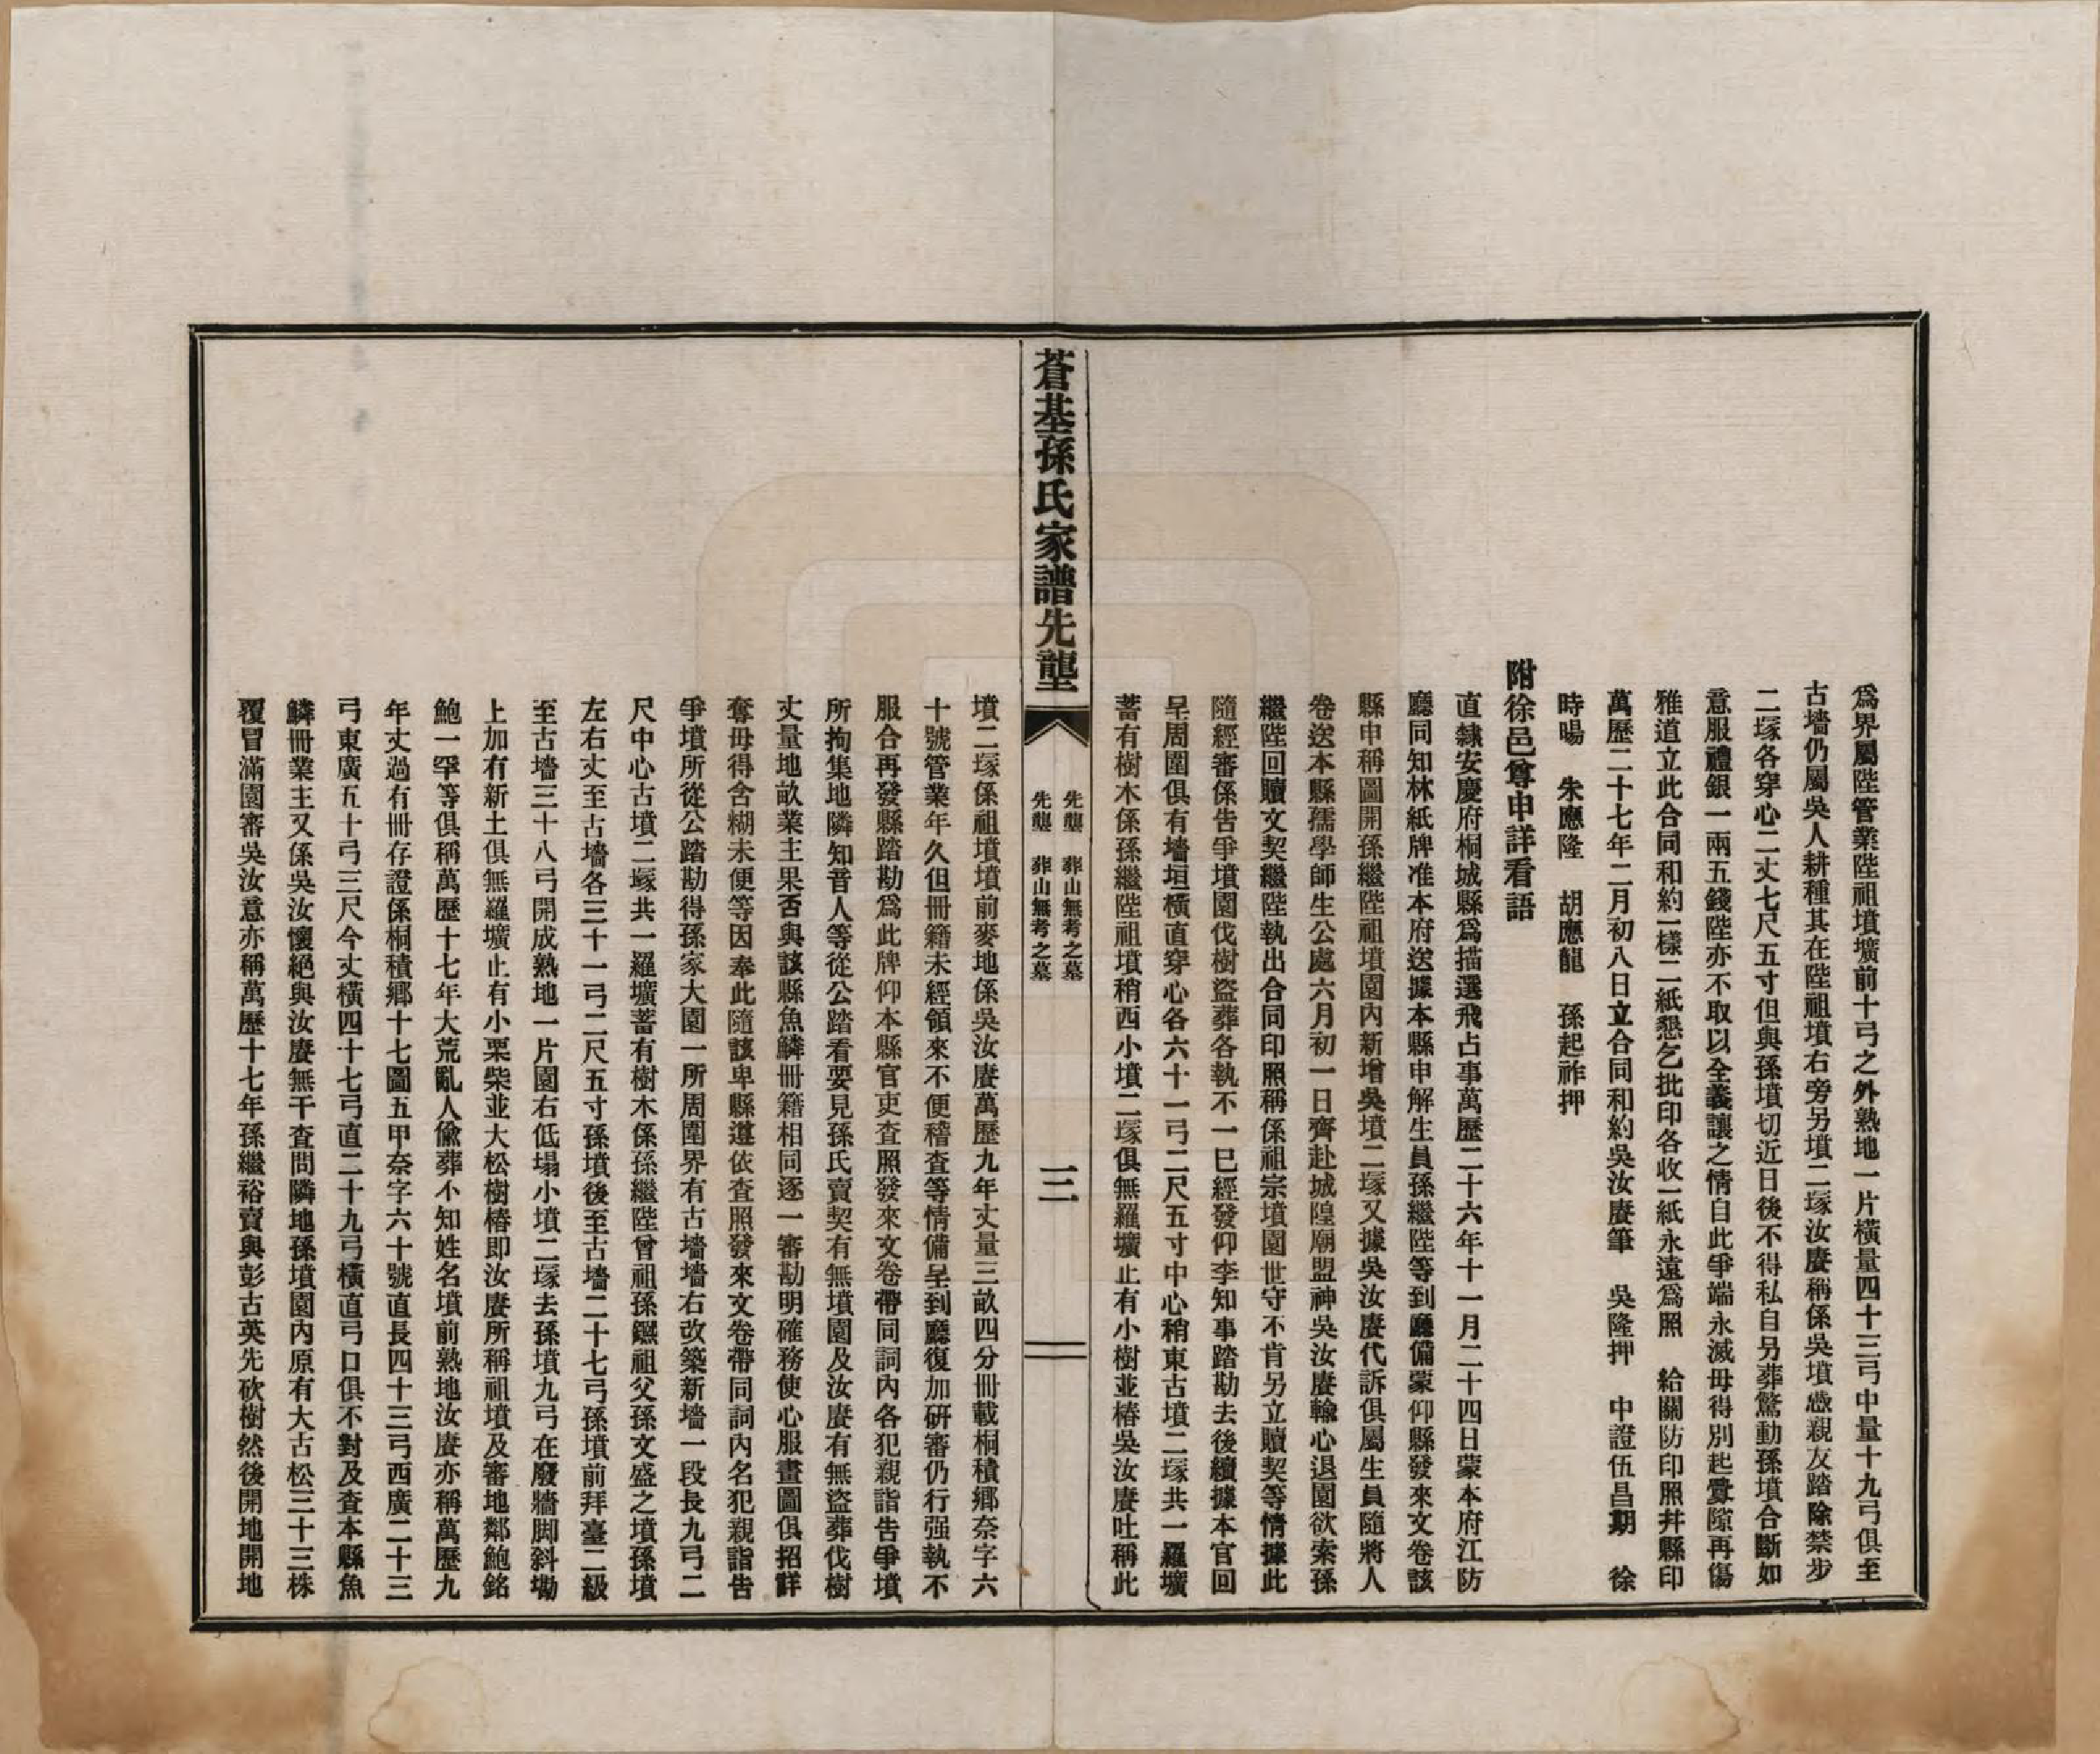 爲界屬陛管業陛祖墳壙前十弓之外熟地一片橫量四十三弓中量十九弓俱至
古墻仍屬吳人耕種其在陛祖墳右旁另墳二塚汝賡稱係吳墳憑親友踏除禁步
二塚各穿心二丈七尺五寸但與孫墳切近日後不得私自另葬驚動孫墳合斷如
意服禮銀一兩五錢陛亦不取以全義讓之情自此爭端永滅毋得別起釁隙再傷
雅道立此合同和約一樣二紙懇乞批印各收一紙永遠爲照　給關防印照幷縣印
萬歷二十七年二月初八日立合同和約吳汝賡筆　吳隆押　中證伍昌期　徐
時暘　朱應隆　胡應龍　孫起祚押
附徐邑尊申詳看語
直隸安慶府桐城縣爲描選飛占事萬歷二十六年十一月二十四日蒙本府江防
廳同知林紙牌准本府送據本縣申解生員孫繼陛等到廳備蒙仰縣發來文卷該
縣申稱圖開孫繼陛祖墳園內新增吳墳二塚又據吳汝賡代訴俱屬生員隨將人
卷送本縣孺學師生公處六月初一日齊赴城隍廟盟神吳汝賡輸心退園欲索孫
繼陛回贖文契繼陛執出合同印照稱係祖宗墳園世守不肯另立贖契等情據此
隨經審係告爭墳園伐樹盜葬各執不一已經發仰李知事踏勘去後續據本官回
呈周圍俱有墻垣橫直穿心各六十一弓二尺五寸中心稍東古墳二塚共一羅壙
蓄有樹木係孫繼陛祖墳稍西小墳二塚俱無羅壙止有小樹並樁吳汝賡吐稱此
蒼基孫氏家譜先壟
先壟　葬山無考之墓
先壟　葬山無考之墓
三
墳二塚係祖墳墳前麥地係吳汝賡萬歷九年丈量三畝四分冊載桐積鄉奈字六
十號管業年久但冊籍未經領來不便稽查等情備呈到廳復加研審仍行强執不
服合再發縣踏勘爲此牌仰本縣官吏查照發來文卷帶同詞內各犯親詣告爭墳
所拘集地隣知音人等從公踏看要見孫氏賣契有無墳園及汝賡有無盜葬伐樹
丈量地畝業主果否與該縣魚鱗冊籍相同逐一審勘明確務使心服畫圖俱招詳
奪毋得含糊未便等因奉此隨該卑縣遵依查照發來文卷帶同詞內名犯親詣告
爭墳所從公踏勘得孫家大園一所周圍界有古墻墻右改築新墻一段長九弓二
尺中心古墳二塚共一羅壙蓄有樹木係孫繼陛曾祖孫鑼祖父孫文盛之墳孫墳
左右丈至古墻各三十一弓二尺五寸孫墳後至古墻二十七弓孫墳前拜臺二級
至古墻三十八弓開成熟地一片園右低塌小墳二塚去孫墳九弓在廢牆脚斜壩
上加有新土俱無羅壙止有小栗柴並大松樹樁即汝賡所稱祖墳及審地鄰鮑銘
鮑一罕等俱稱萬歷十七年大荒亂人偸葬不知姓名墳前熟地汝賡亦稱萬歷九
年丈過有冊存證係桐積鄉十七圖五甲奈字六十號直長四十三弓西廣二十三
弓東廣五十弓三尺今丈橫四十七弓直二十九弓橫直弓口俱不對及查本縣魚
鱗冊業主又係吳汝懷絕與汝賡無干查問隣地孫墳園內原有大古松三十三株
覆冒滿園審吳汝意亦稱萬歷十七年孫繼裕賣與彭古英先砍樹然後開地開地